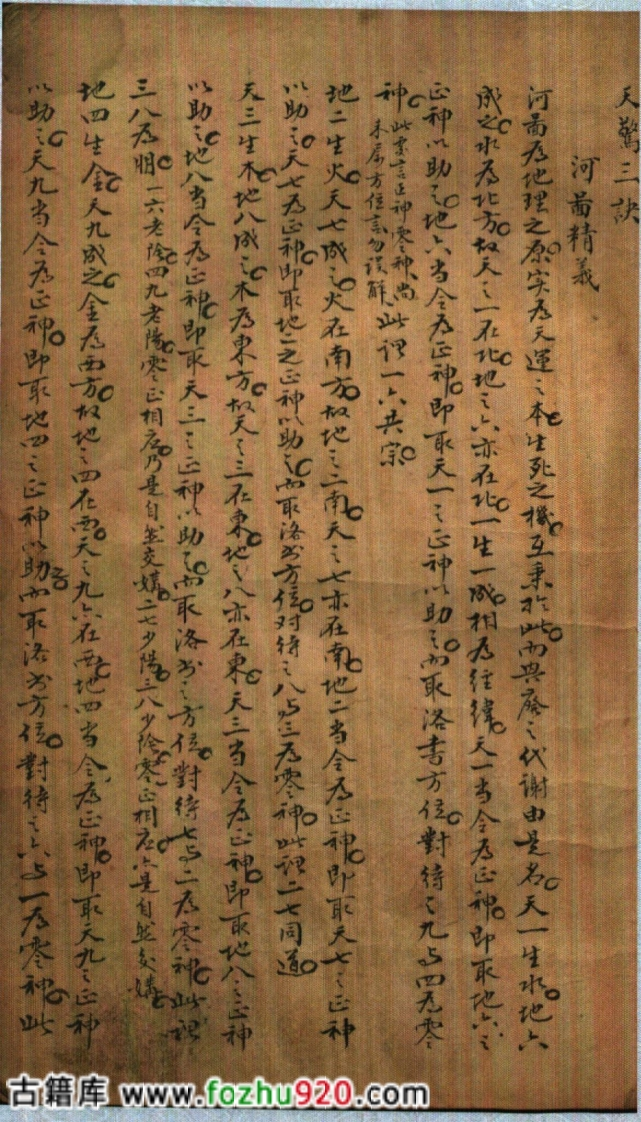 天驚三訣
河啚精義
河啚為地理之原實為天運之本生死之機互乗於此而興廢之代謝由是名天一生水地六
成之水為北方故天之一在北地之六亦在北一生一成相為經緯天一當令為正神即取地六之
正神以助之地六當令為正神即取天一之正神以助之而取洛書方位對待之九与四為零
神此衆言正神零神尚未屬方位言勿誤解此謂一六共宗
地二生火天七成之火在南方故地之二南天之七亦在南地二當令為正神即取天七之正神
以助之天七為正神即取地二之正神以助之而取洛书方位对待之八与三為零神此謂二七同道
天三生木地八成之木為東方故天之三在東地之八亦在東天三當令為正神即取地八之正神
以助之地八当令為正神即取天三之正神以助之而取洛书之方位對待七与二為零神此謂
三八為朋一六老陰四九老陽零正相应乃是自然交媾二七少陽三八少陰零正相应亦是自然交媾
地四生金天九成之金為西方故地之四在西天之九亦在西地四當令為正神即取天九之正神
以助之天九当令為正神即取地四之正神以助而取洛书方位對待之六与一為零神此
古籍库 www.fozhu920.com